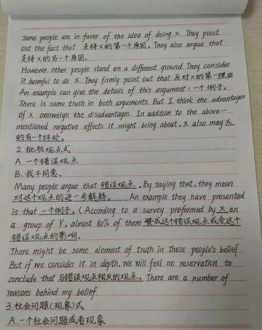 Some people are in favor of the idea of doing X. They point
out the fact that 支持X的第一个原因. They also argue that
支持X的另一个原因.
However, other people stand on a different ground. They consider
it harmful to do X. They firmly point out that 反对X的第一理由
An example can give the details of this argument: 一个例子.
There is some truth in both arguments. But I think the advantages
of X overweigh the disadvantages. In addition to the above-
mentioned negative effects it might bring about, X also may X
的有一个坏处.
2. 批驳观点式
A. 一个错误观点
B. 我不同意.
Many people argue that 错误观点. By saying that, they mean
对这个观点的进一步解释. An example they have presented
is that 一个例子. (According to a survey preformed by X on
a group of Y, almost 80% of them 赞成这个错误观点或受这个
错误观点的影响.
There might be some element of truth in these people's belief.
But if we consider it in depth, we will feel no reservation to
conclude that 与错误观点相反的观点. There are a number of
reasons behind my belief.
3. 社会问题(现象)式
A. 一个社会问题或者现象